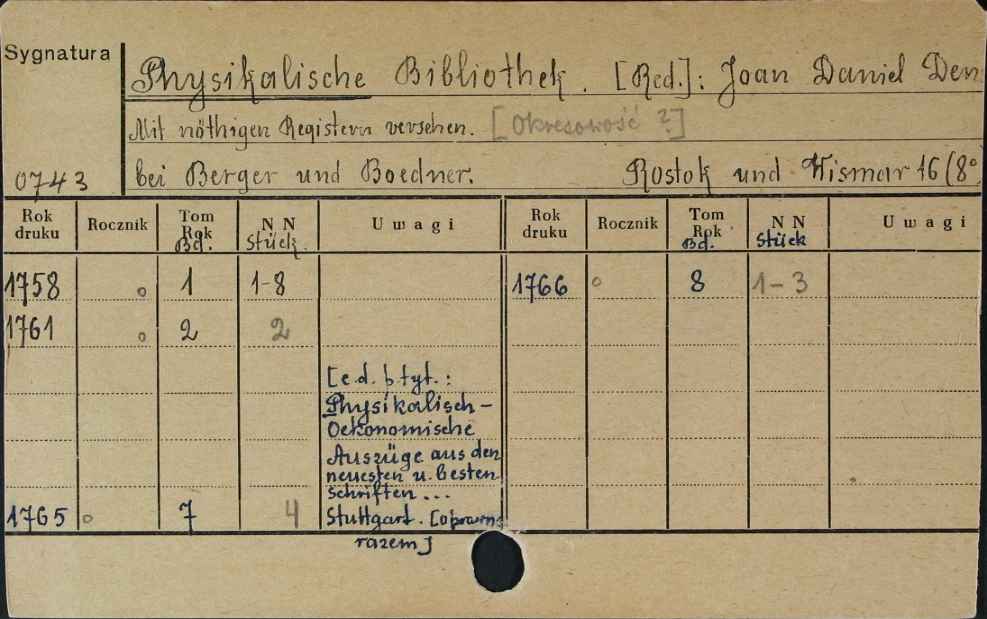 Sygnatura
Physikalische Bibliothek. [Red.]: Joan Daniel Den
Mit nöthigen Registern versehen. [Okresowość ?]
0743 bei Berger und Boedner. Rostok und Wismar 16 (8°
Rok druku Rocznik Tom Rok Bd. N N Stück. Uwagi Rok druku Rocznik Tom Rok Bd. N N Stück Uwagi
1758 o 1 1-8 1766 o 8 1-3
1761 o 2 2
[c.d. p. tyt.:
Physikalisch-
Oekonomische
Auszüge aus den
neuesten u. besten
schriften ...
1765 o 7 4 Stuttgart. [oprawne
razem]